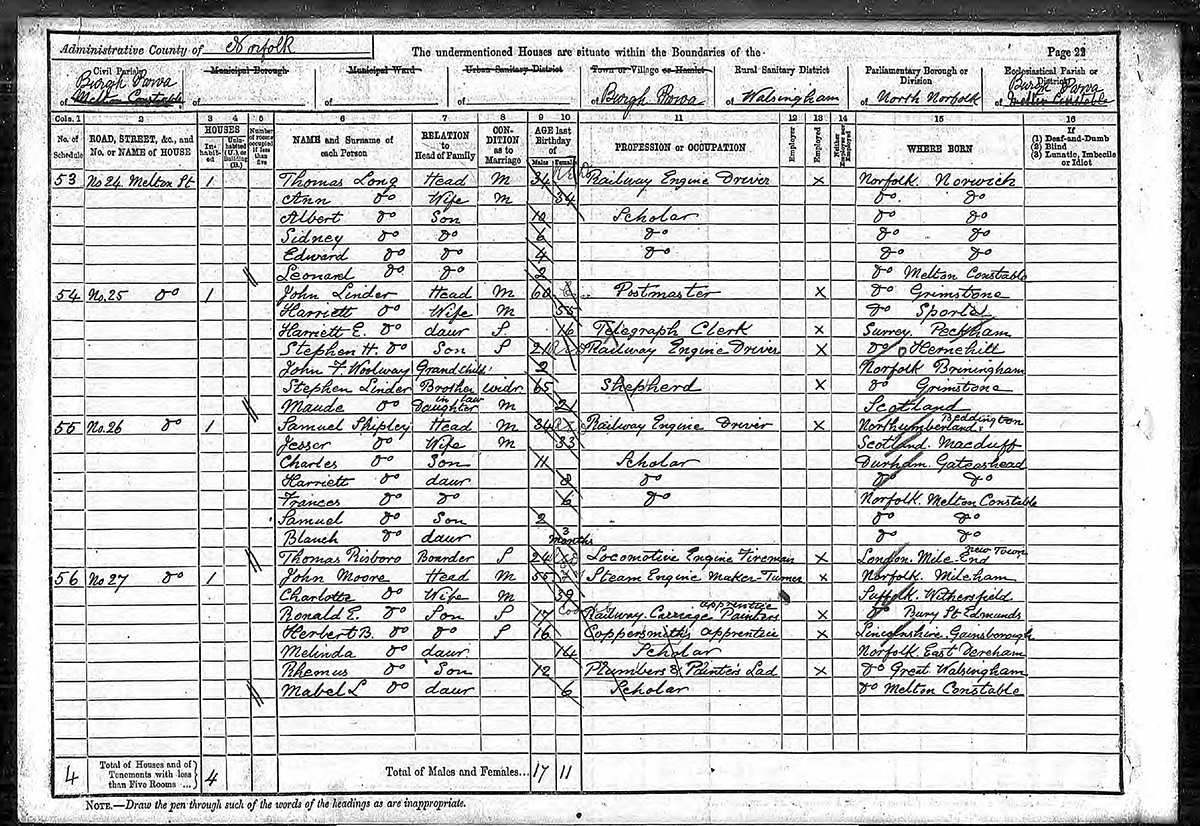 Administrative County of Norfolk The undermentioned Houses are situate within the Boundaries of the Page 22
Civil Parish Municipal Borough Municipal Ward Urban Sanitary District Town or Village or Hamlet Rural Sanitary District Parliamentary Borough or Division Ecclesiastical Parish or District
of Burgh Parva Melton Constable of of of of Burgh Parva of Walsingham of North Norfolk of Burgh Parva Melton Constable
Cols. 1 2 3 4 5 6 7 8 9 10 11 12 13 14 15 16
No. of Schedule ROAD, STREET, &c., and No. or NAME of HOUSE HOUSES Inhabited Uninhabited (U.) or Building (B.) Number of rooms occupied if less than five NAME and Surname of each Person RELATION to Head of Family CONDITION as to Marriage AGE last Birthday of Males Females PROFESSION or OCCUPATION Employer Employed Neither Employer nor Employed WHERE BORN If (1) Deaf-and-Dumb (2) Blind (3) Lunatic, Imbecile or Idiot
53 No 24 Melton St 1 Thomas Long Head M 34 Railway Engine Driver x Norfolk. Norwich
Ann Do Wife M 34 Do. Do
Albert Do Son 10 Scholar Do Do
Sidney Do Do 6 Do Do Do
Edward Do Do 4 Do Do Do
Leonard Do Do 2 Do Melton Constable
54 No. 25 Do 1 John Linder Head M 60 Postmaster x Do Grimstone
Harriett Do Wife M 55 Do Sporle
Harriett E. Do daur S 16 Telegraph Clerk x Surrey Peckham
Stephen H. Do Son S 21 Railway Engine Driver x Do Hernehill
John F Woolway Grandchild 2 Norfolk Briningham
Stephen Linder Brother widr. 65 Shepherd x Do Grimstone
Maude Do Daughter in law M 21 Scotland
55 No. 26 Do 1 Samuel Shipley Head M 34 Railway Engine Driver x Northumberland. Beddington
Jesser Do Wife M 33 Scotland. Macduff
Charles Do Son 11 Scholar Durham. Gateashead
Harriett Do daur 8 Do Do Do
Frances Do Do 6 Do Norfolk. Melton Constable
Samuel Do Son 2 Do Do
Blanch Do daur 3 months Do Do
Thomas Risboro Boarder S 24 Locomotive Engine Fireman x London. Mile-End New Town
56 No 27 Do 1 John Moore Head M 55 Steam Engine Maker-Turner x Norfolk. Mileham
Charlotte Do Wife M 39 Suffolk. Withersfield
Ronald E. Do Son S 17 Railway. Carriage Painters apprentice x Do Bury St Edmunds
Herbert B. Do Do S 16 Coppersmith's apprentice x Lincolnshire. Gainsborough
Melinda Do daur 14 Scholar Norfolk East Dereham
Rhemus Do Son 12 Plumbers & Painter's Lad x Do Great Walsingham
Mabel L Do daur 6 Scholar Do Melton Constable
4 Total of Houses and of Tenements with less than Five Rooms ... 4 Total of Males and Females... 17 11
NOTE.—Draw the pen through such of the words of the headings as are inappropriate.